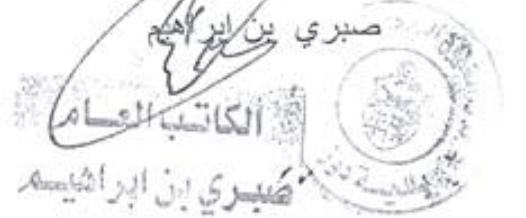 صبري بن ابراهيم
الكاتب العام
صبري بن ابراهيم
بلدية دوز